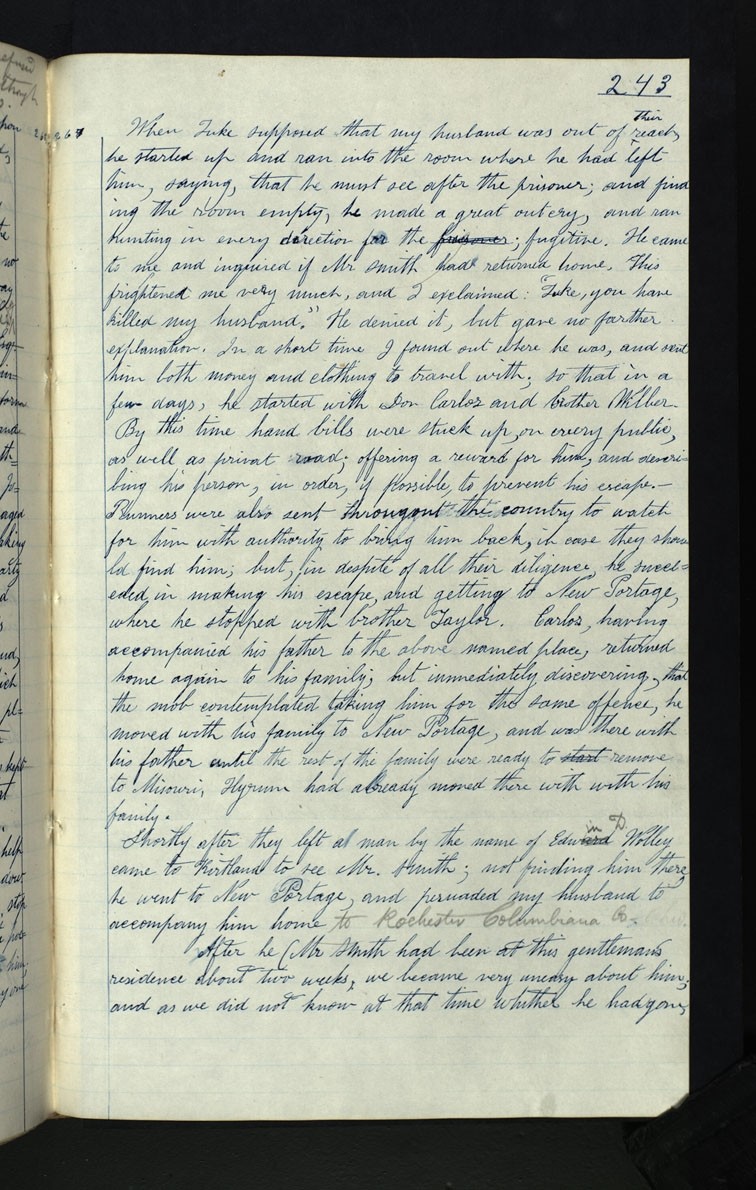 243
When Luke supposed that my husband was out of their reach,
he started up and ran into the room where he had left
him, saying, that he must see after the prisoner; and find
ing the room empty, he made a great outcry, and ran
hunting in every direction for the prisoner; fugitive. He came
to me and inquired if Mr Smith had returned home. This
frightened me very much, and I exclaimed: "Luke, you have
killed my husband." He denied it, but gave no farther
explanation. In a short time I found out where he was, and sent
him both money and clothing to travel with; so that in a
few days, he started with Don Carlos and brother Wilber.
By this time hand bills were stuck up, on every public,
as well as privat road; offering a reward for him, and descri-
bing his person, in order, if possible, to prevent his escape.-
Runners were also sent througout the country to watch
for him with authority to bring him back, in case they shou
ld find him; but, in despite of all their diligence, he succe-
eded in making his escape, and getting to New Portage,
where he stopped with brother Taylor. Carlos, having
accompanied his father to the above named place, returned
home again to his family; but immediately discovering, that
the mob contemplated taking him for the same offence, he
moved with his family to New Portage, and was there with
his father until the rest of the family were ready to start remove
to Misouri, Hyrum had already moved there with with his
family.
Shortly after they left a man by the name of Edward in D. Wolley
came to Kirtland to see Mr. Smith; not finding him there,
he went to New Portage, and persuaded my husband to
accompany him home to Rochester Columbiana Co.
After he (Mr Smith had been at this gentlemans
residence about two weeks, we became very uneasy about him;
and as we did not know at that time whither he had gone,